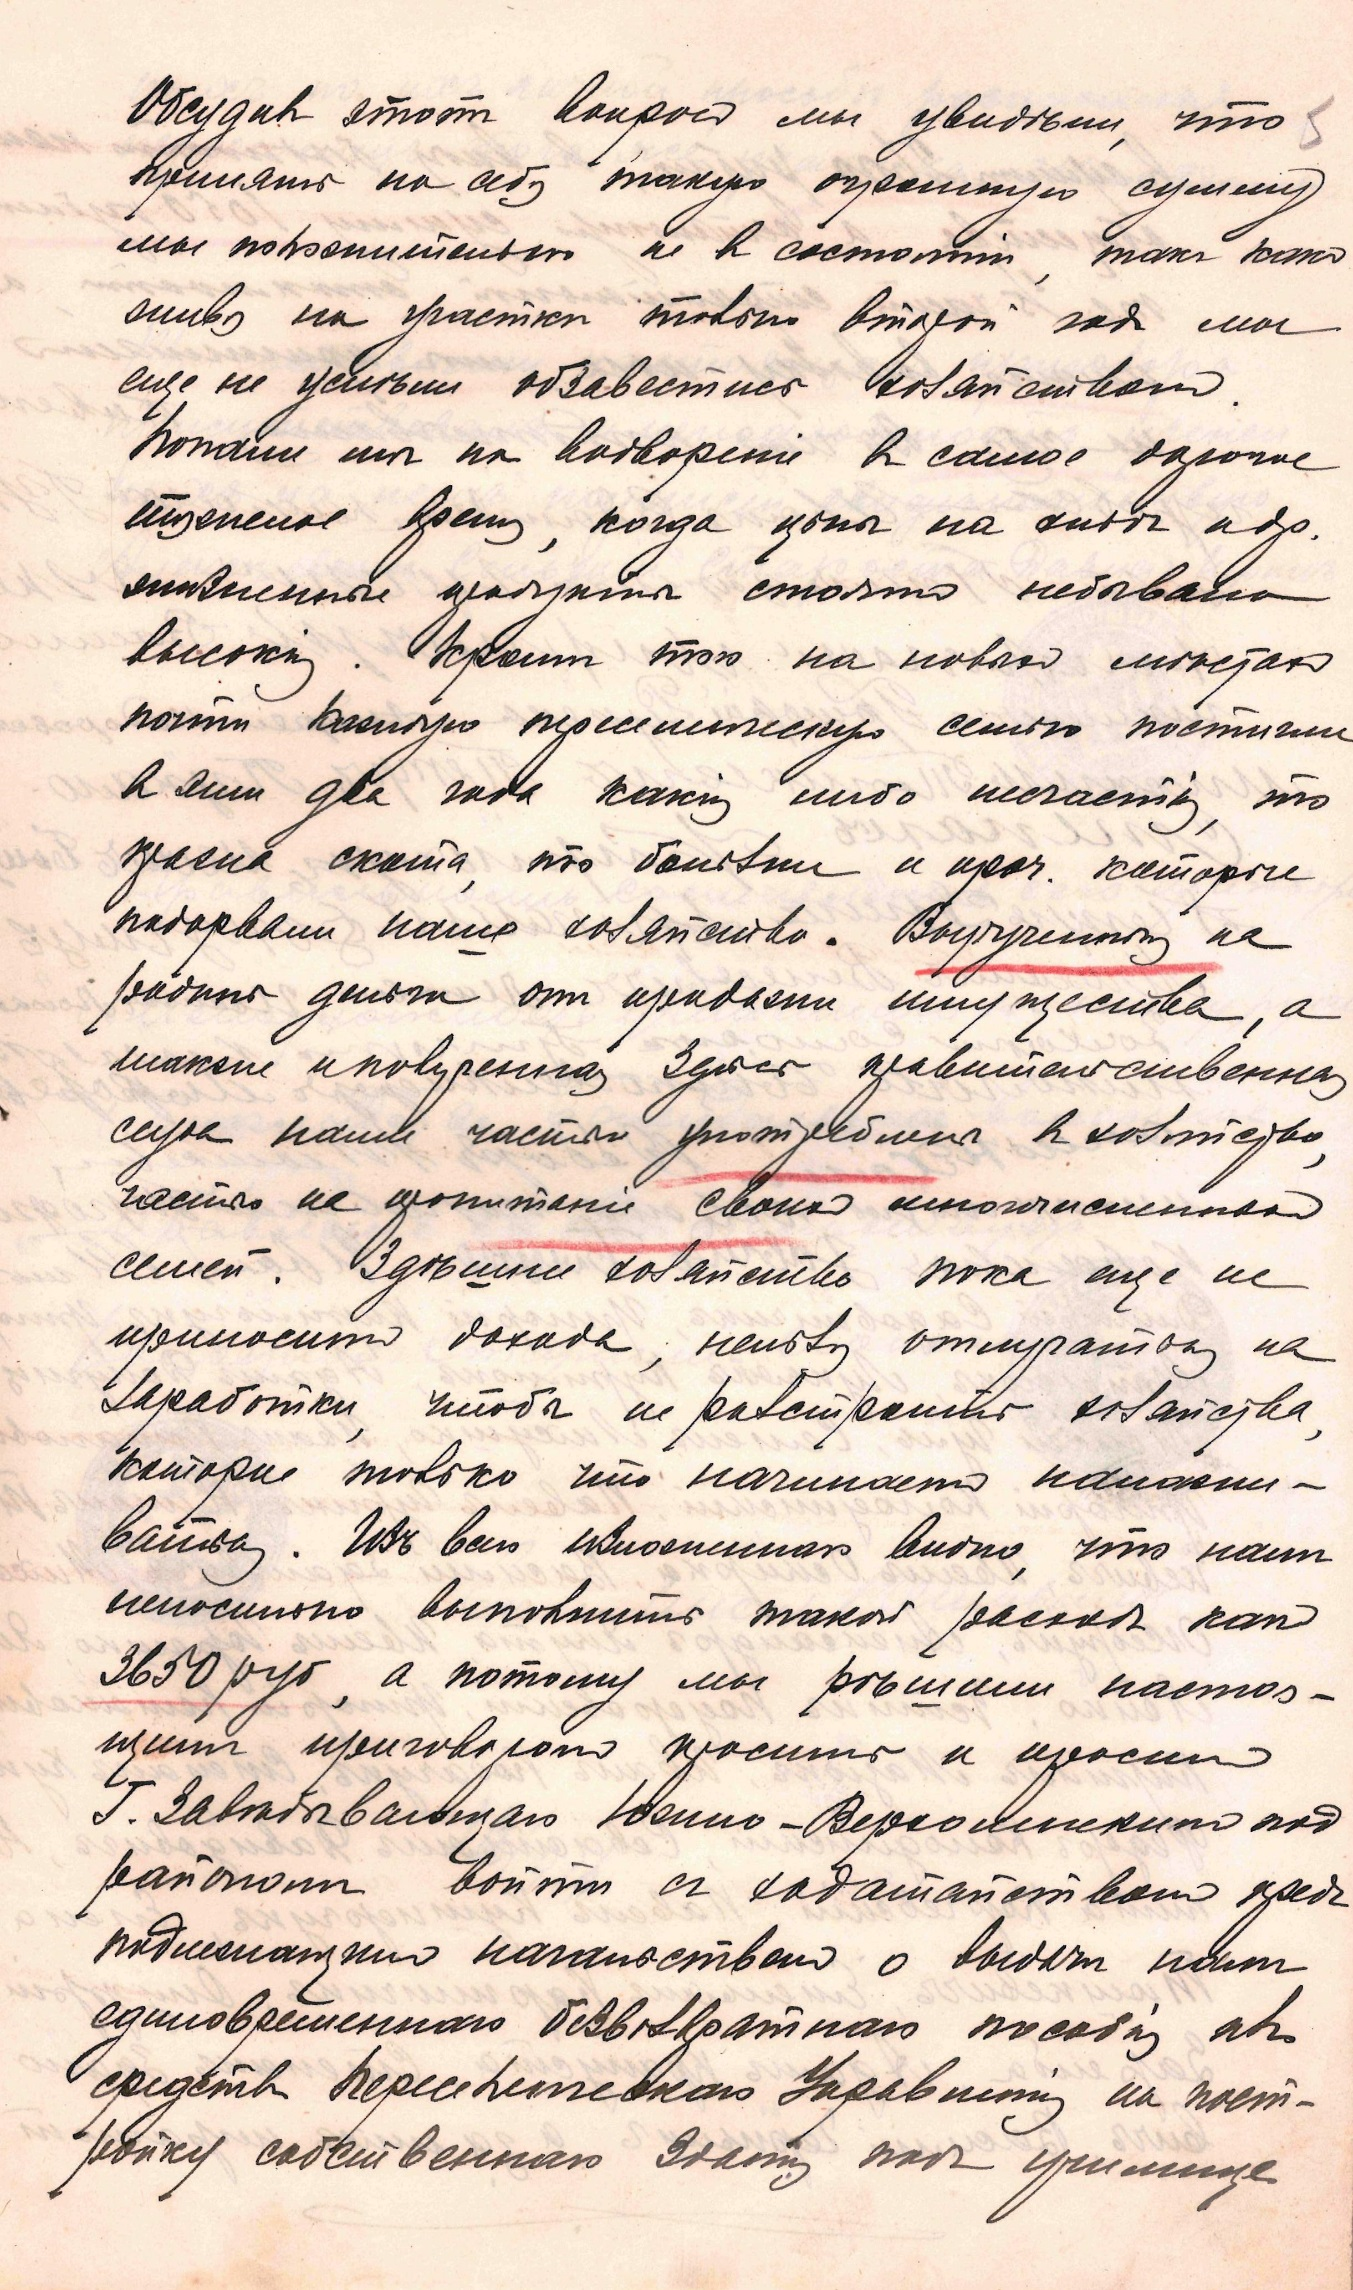 Обсудивъ этотъ вопросъ мы увидѣли, что
принять на себя такую огромную сумму
мы положительно не въ состояніи, такъ какъ
живя на участкѣ только второй годъ мы
еще не успѣли обзавестись хозяйствомъ.
Попали мы на водвореніе въ самое дорогое
тяжелое время, когда цѣны на хлѣбъ и др.
жизненные продукты стоятъ небывало
высокія. Кромѣ того на новыхъ мѣстахъ
почти каждую переселенческую семью постигли
въ эти два года какія либо несчастія, то
кража скота, то болѣзни и проч. которые
подорвали наше хозяйство. Вырученныя на
родинѣ деньги отъ продажи имущества, а
также и полученная здѣсь правительственная
ссуда нами частью употреблены въ хозяйство,
частью на пропитаніе своихъ многочисленныхъ
семей. Здѣшнее хозяйство пока еще не
приноситъ дохода, нельзя отлучаться на
заработки, чтобы не разстроить хозяйства,
которое только что начинаетъ налажи-
ваться. Изъ всего изложеннаго видно, что намъ
непосильно выполнить такой расходъ какъ
3650 руб, а потому мы рѣшили настоя-
щимъ приговоромъ просить и просимъ
Г. Завѣдывающаго Южно-Верхоленскимъ под
райономъ войти съ ходатайствомъ предъ
подлежащимъ начальствомъ о выдачѣ намъ
единовременнаго безвозвратнаго пособія изъ
средствъ Переселенческаго Управленія на пост-
ройку собственнаго зданія подъ училище